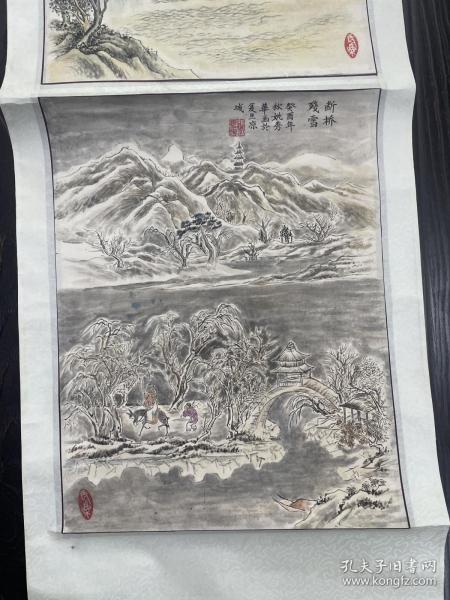 断桥
殘雪
癸酉年
秋姚秀
華画於
夏旦凉
城
孔夫子旧书网
www.kongfz.com